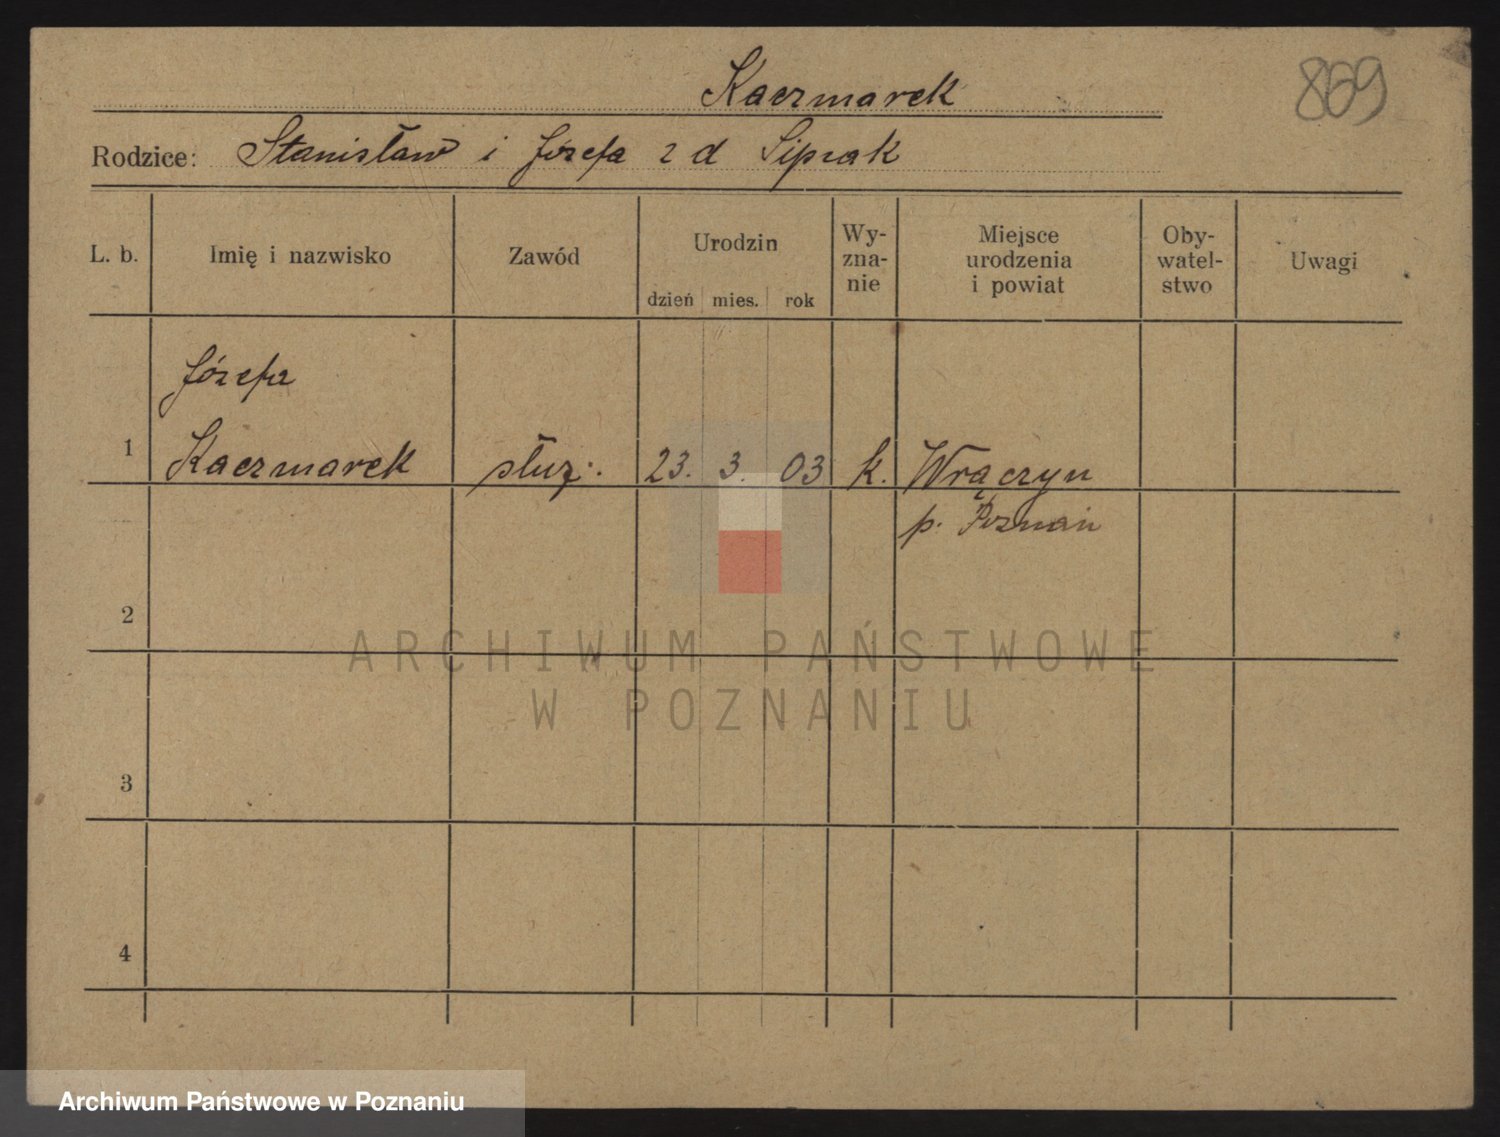 869
Kaczmarek
Rodzice: Stanisław i Józefa z d Sipiak
L. b. Imię i nazwisko Zawód Urodzin Wy-zna-nie Miejsce urodzenia i powiat Oby-watel-stwo Uwagi
dzień mies. rok
Józefa
1 Kaczmarek służ. 23. 3. 03 k. Wrączyn
p. Poznań
2
ARCHIWUM PAŃSTWOWE
W POZNANIU
3
4
Archiwum Państwowe w Poznaniu